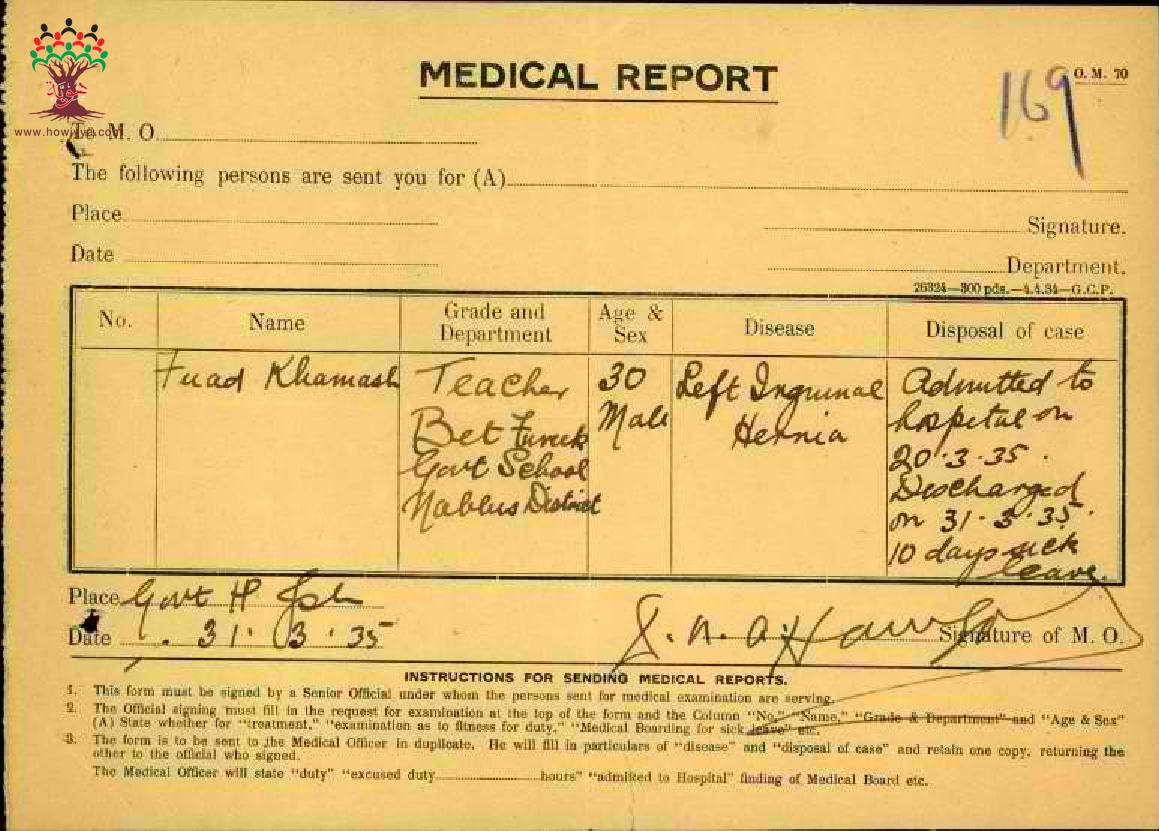 MEDICAL REPORT
169
O. M. 70
www.howiyya.com
To M. O.
The following persons are sent you for (A)
Place
Signature.
Date
Department.
26324—300 pds.—4.4.34—G.C.P.
No. Name Grade and Department Age & Sex Disease Disposal of case
Fuad Khamash Teacher 30 Left Inguinal Admitted to
Bet Furik Male Hernia hospital on
Govt School 20.3.35.
Nablus District Discharged
on 31.3.35.
10 days sick
leave.
Place Govt H
Date 31.3.35
Signature of M. O.
INSTRUCTIONS FOR SENDING MEDICAL REPORTS.
1. This form must be signed by a Senior Official under whom the persons sent for medical examination are serving.
2. The Official signing must fill in the request for examination at the top of the form and the Column "No," "Name," "Grade & Department" and "Age & Sex"
(A) State whether for "treatment," "examination as to fitness for duty," "Medical Boarding for sick leave" etc.
3. The form is to be sent to the Medical Officer in duplicate. He will fill in particulars of "disease" and "disposal of case" and retain one copy, returning the
other to the official who signed.
The Medical Officer will state "duty" "excused duty hours" "admitted to Hospital" finding of Medical Board etc.